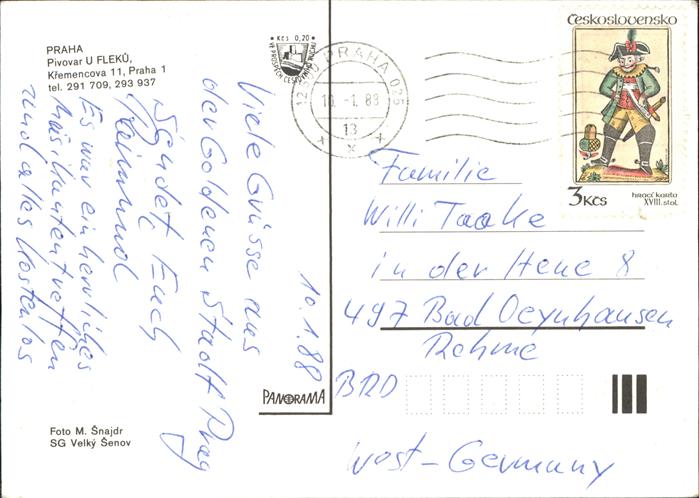 PRAHA
Pivovar U FLEKŮ,
Křemencova 11, Praha 1
tel. 291 709, 293 937
Kčs 0,20
PRAHA 025
10.-1.88
13
Československo
3 Kčs
hrací karta
XVIII. stol.
10.1.88
Viele Grüsse aus
der Goldenen Stadt Prag
Sendet Euch
Reinhard
Es war ein herrliches
und alles kostenlos
Familie
Willi Taake
in der Hene 8
497 Bad Oeynhausen
Rehme
BRD
West-Germany
PANORAMA
Foto M. Šnajdr
SG Velký Šenov